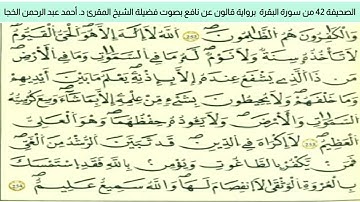 الصحيفة 42 من سورة البقرة برواية قالون عن نافع بصوت فضيلة الشيخ المقرئ د. أحمد عبد الرحمن الخجا
وَالْكَٰفِرُونَ هُمُ الظَّٰلِمُونَ اللَّهُ لَا إِلَٰهَ إِلَّا هُوَ الْحَيُّ الْقَيُّومُ
لَا تَأْخُذُهُ سِنَةٌ وَلَا نَوْمٌ لَّهُ مَا فِي السَّمَٰوَٰتِ وَمَا فِي الْأَرْضِ
مَن ذَا الَّذِي يَشْفَعُ عِندَهُ إِلَّا بِإِذْنِهِ يَعْلَمُ مَا بَيْنَ أَيْدِيهِمْ
وَمَا خَلْفَهُمْ وَلَا يُحِيطُونَ بِشَيْءٍ مِّنْ عِلْمِهِ إِلَّا بِمَا شَاءَ وَسِعَ كُرْسِيُّهُ
السَّمَٰوَٰتِ وَالْأَرْضَ وَلَا يَـُٔودُهُ حِفْظُهُمَا وَهُوَ الْعَلِيُّ
الْعَظِيمُ لَا إِكْرَاهَ فِي الدِّينِ قَد تَّبَيَّنَ الرُّشْدُ مِنَ الْغَيِّ
فَمَنْ يَكْفُرْ بِالطَّٰغُوتِ وَيُؤْمِنْ بِاللَّهِ فَقَدِ اسْتَمْسَكَ
بِالْعُرْوَةِ الْوُثْقَىٰ لَا انفِصَامَ لَهَا وَاللَّهُ سَمِيعٌ عَلِيمٌ